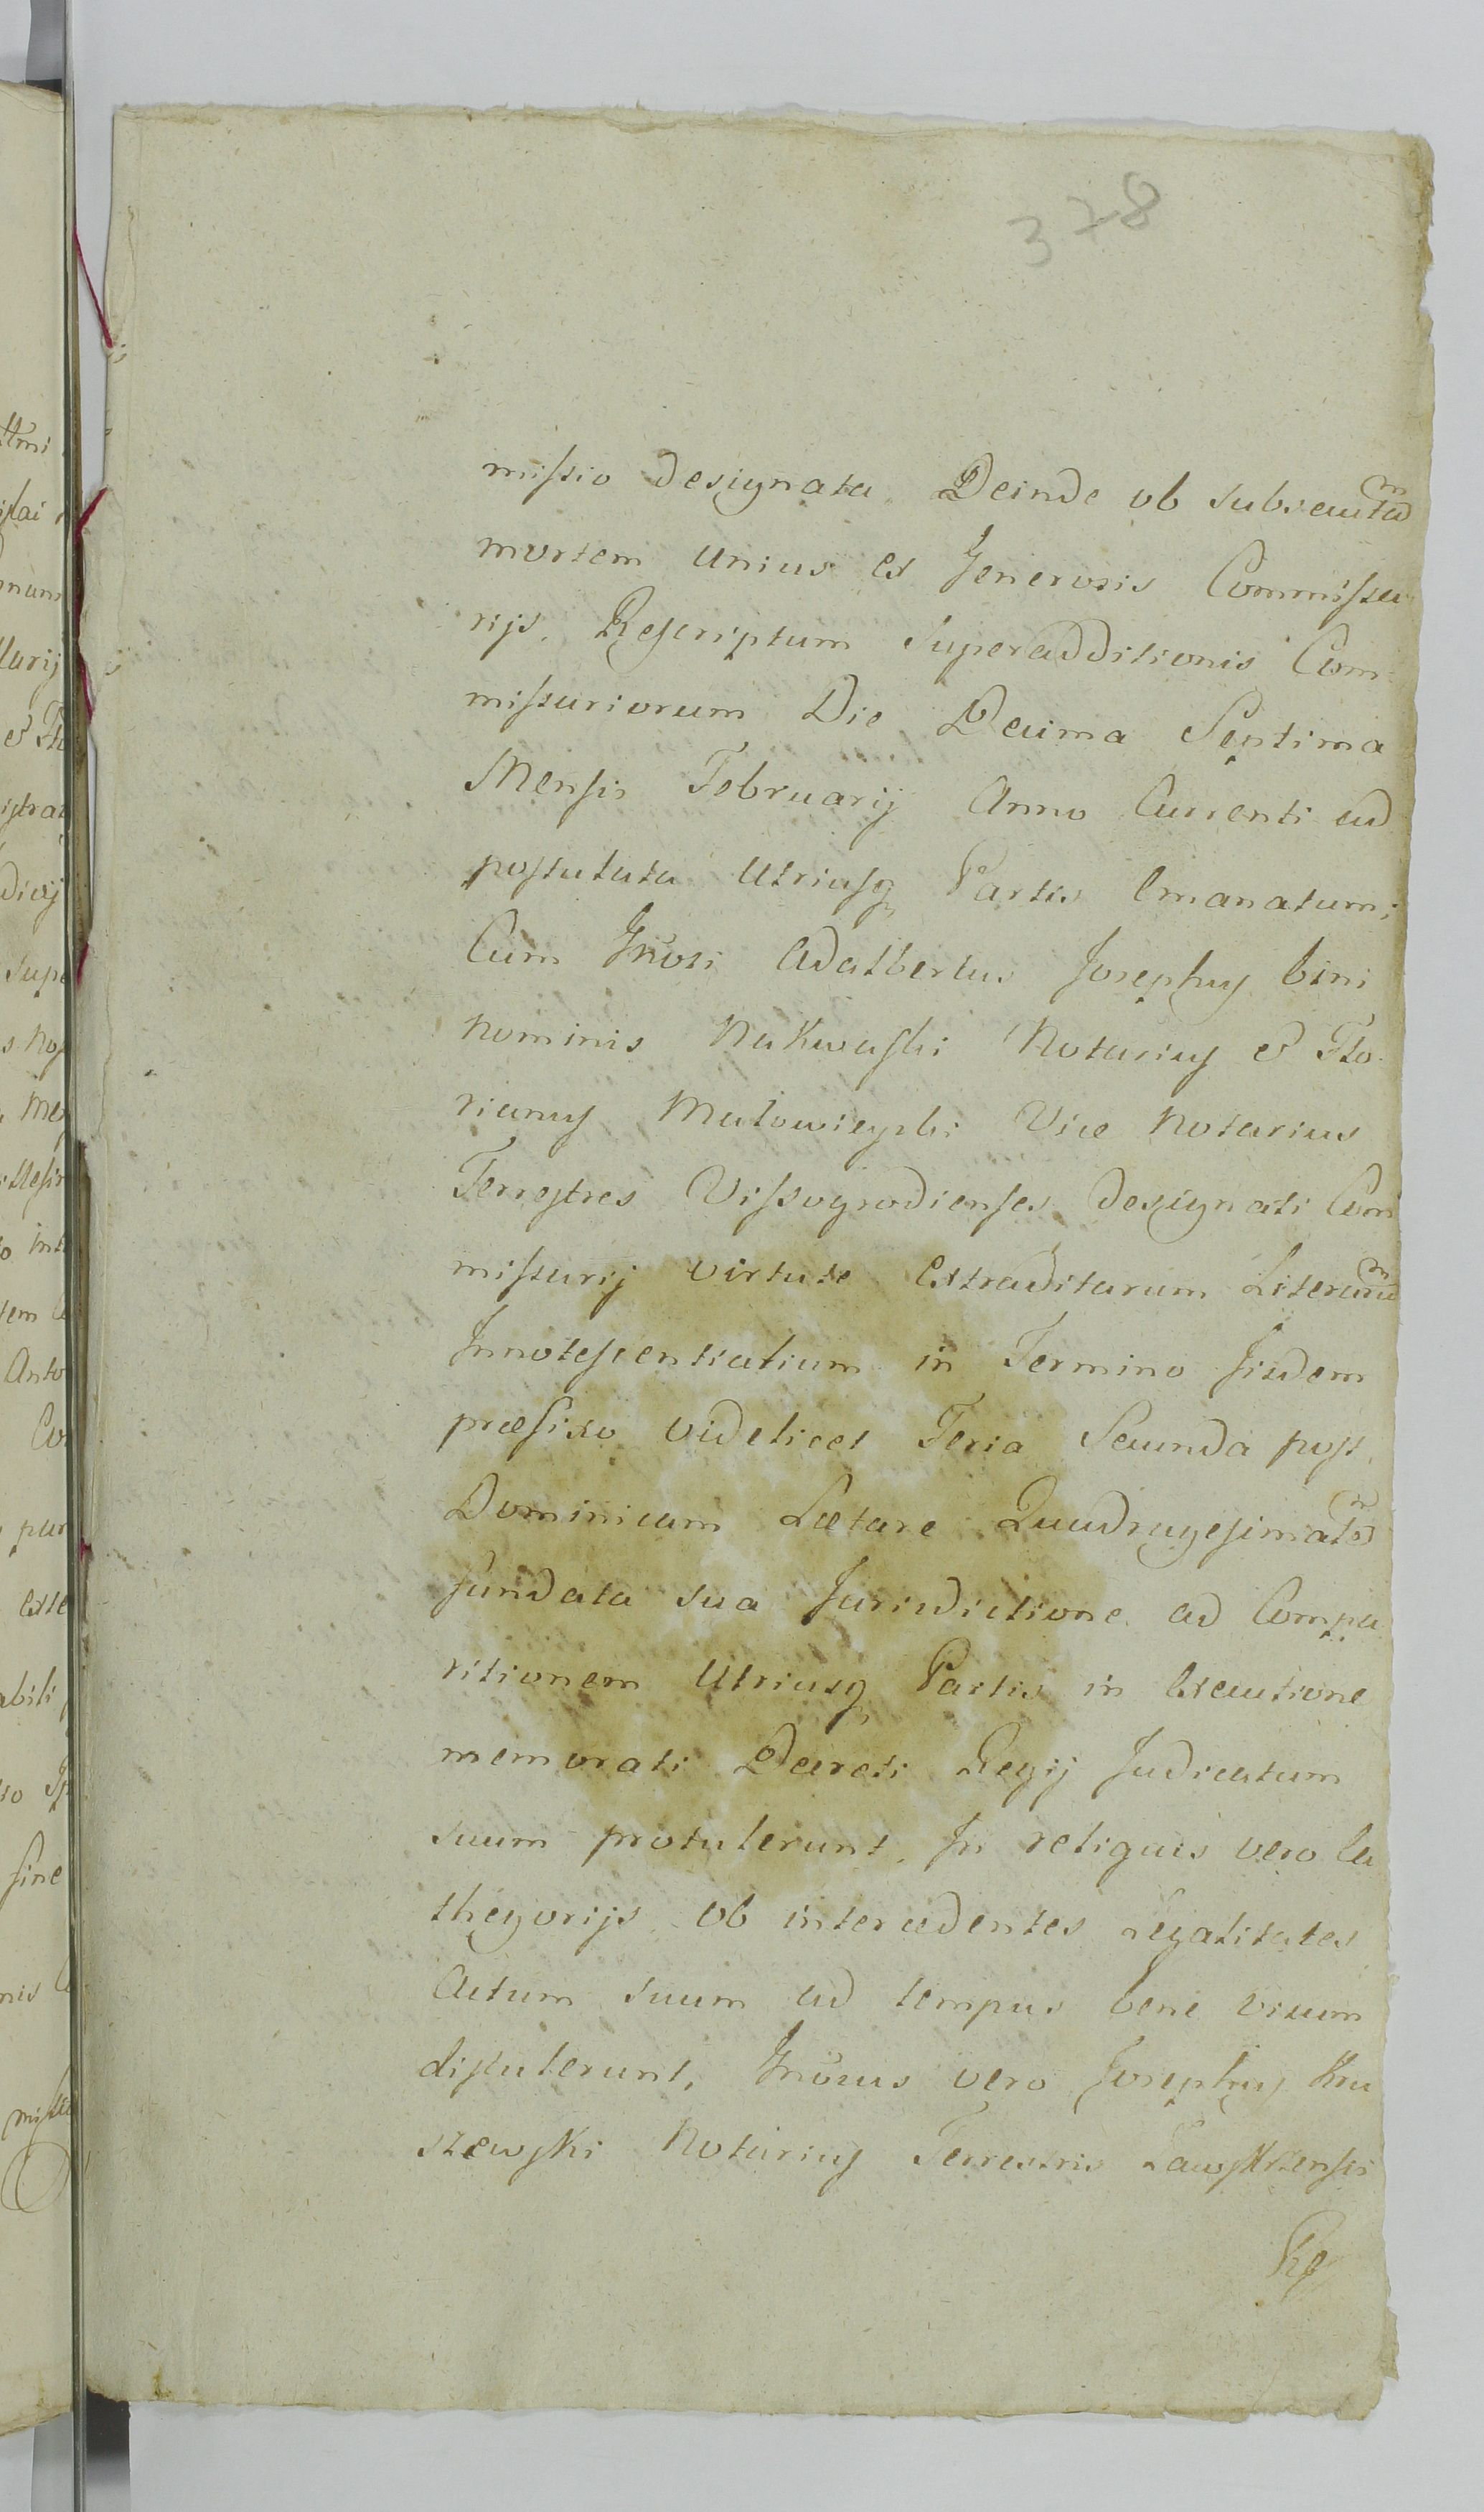 378
missio designata. Deinde ob subsecutam
mortem unius ex Generosis Commissa
rijs. Rescriptum Superadditionis Com
missariorum Die Decima Septima
Mensis Februarij Anno Currenti ad
postulata Utriusq Partis Emanatum;
Cum Gnosi Adalbertus Josephus bini
nominis Nakwaski Notarius & Flo
rianus Malowieyski Vice Notarius
Terrestres Vissogrodienses designati Com
missarij virtute Extraditarum Literarum
Innotescentialium in Termino Iisdem
præfixo videlicet Feria Secunda post
Dominicam Lætare Quadragesimalem
fundata sua Jurisdictione ad Compa
ritionem Utriusq Partis in Executione
memorati Decreti Regij Judicatum
suum protulerunt. In reliquis vero Ca
thegorijs ob intercedentes Legalitates
Actum suum ad tempus bene visum
distulerunt, Gnosus vero Josephus Kra
szewski Notarius Terrestris Zawskrzensis